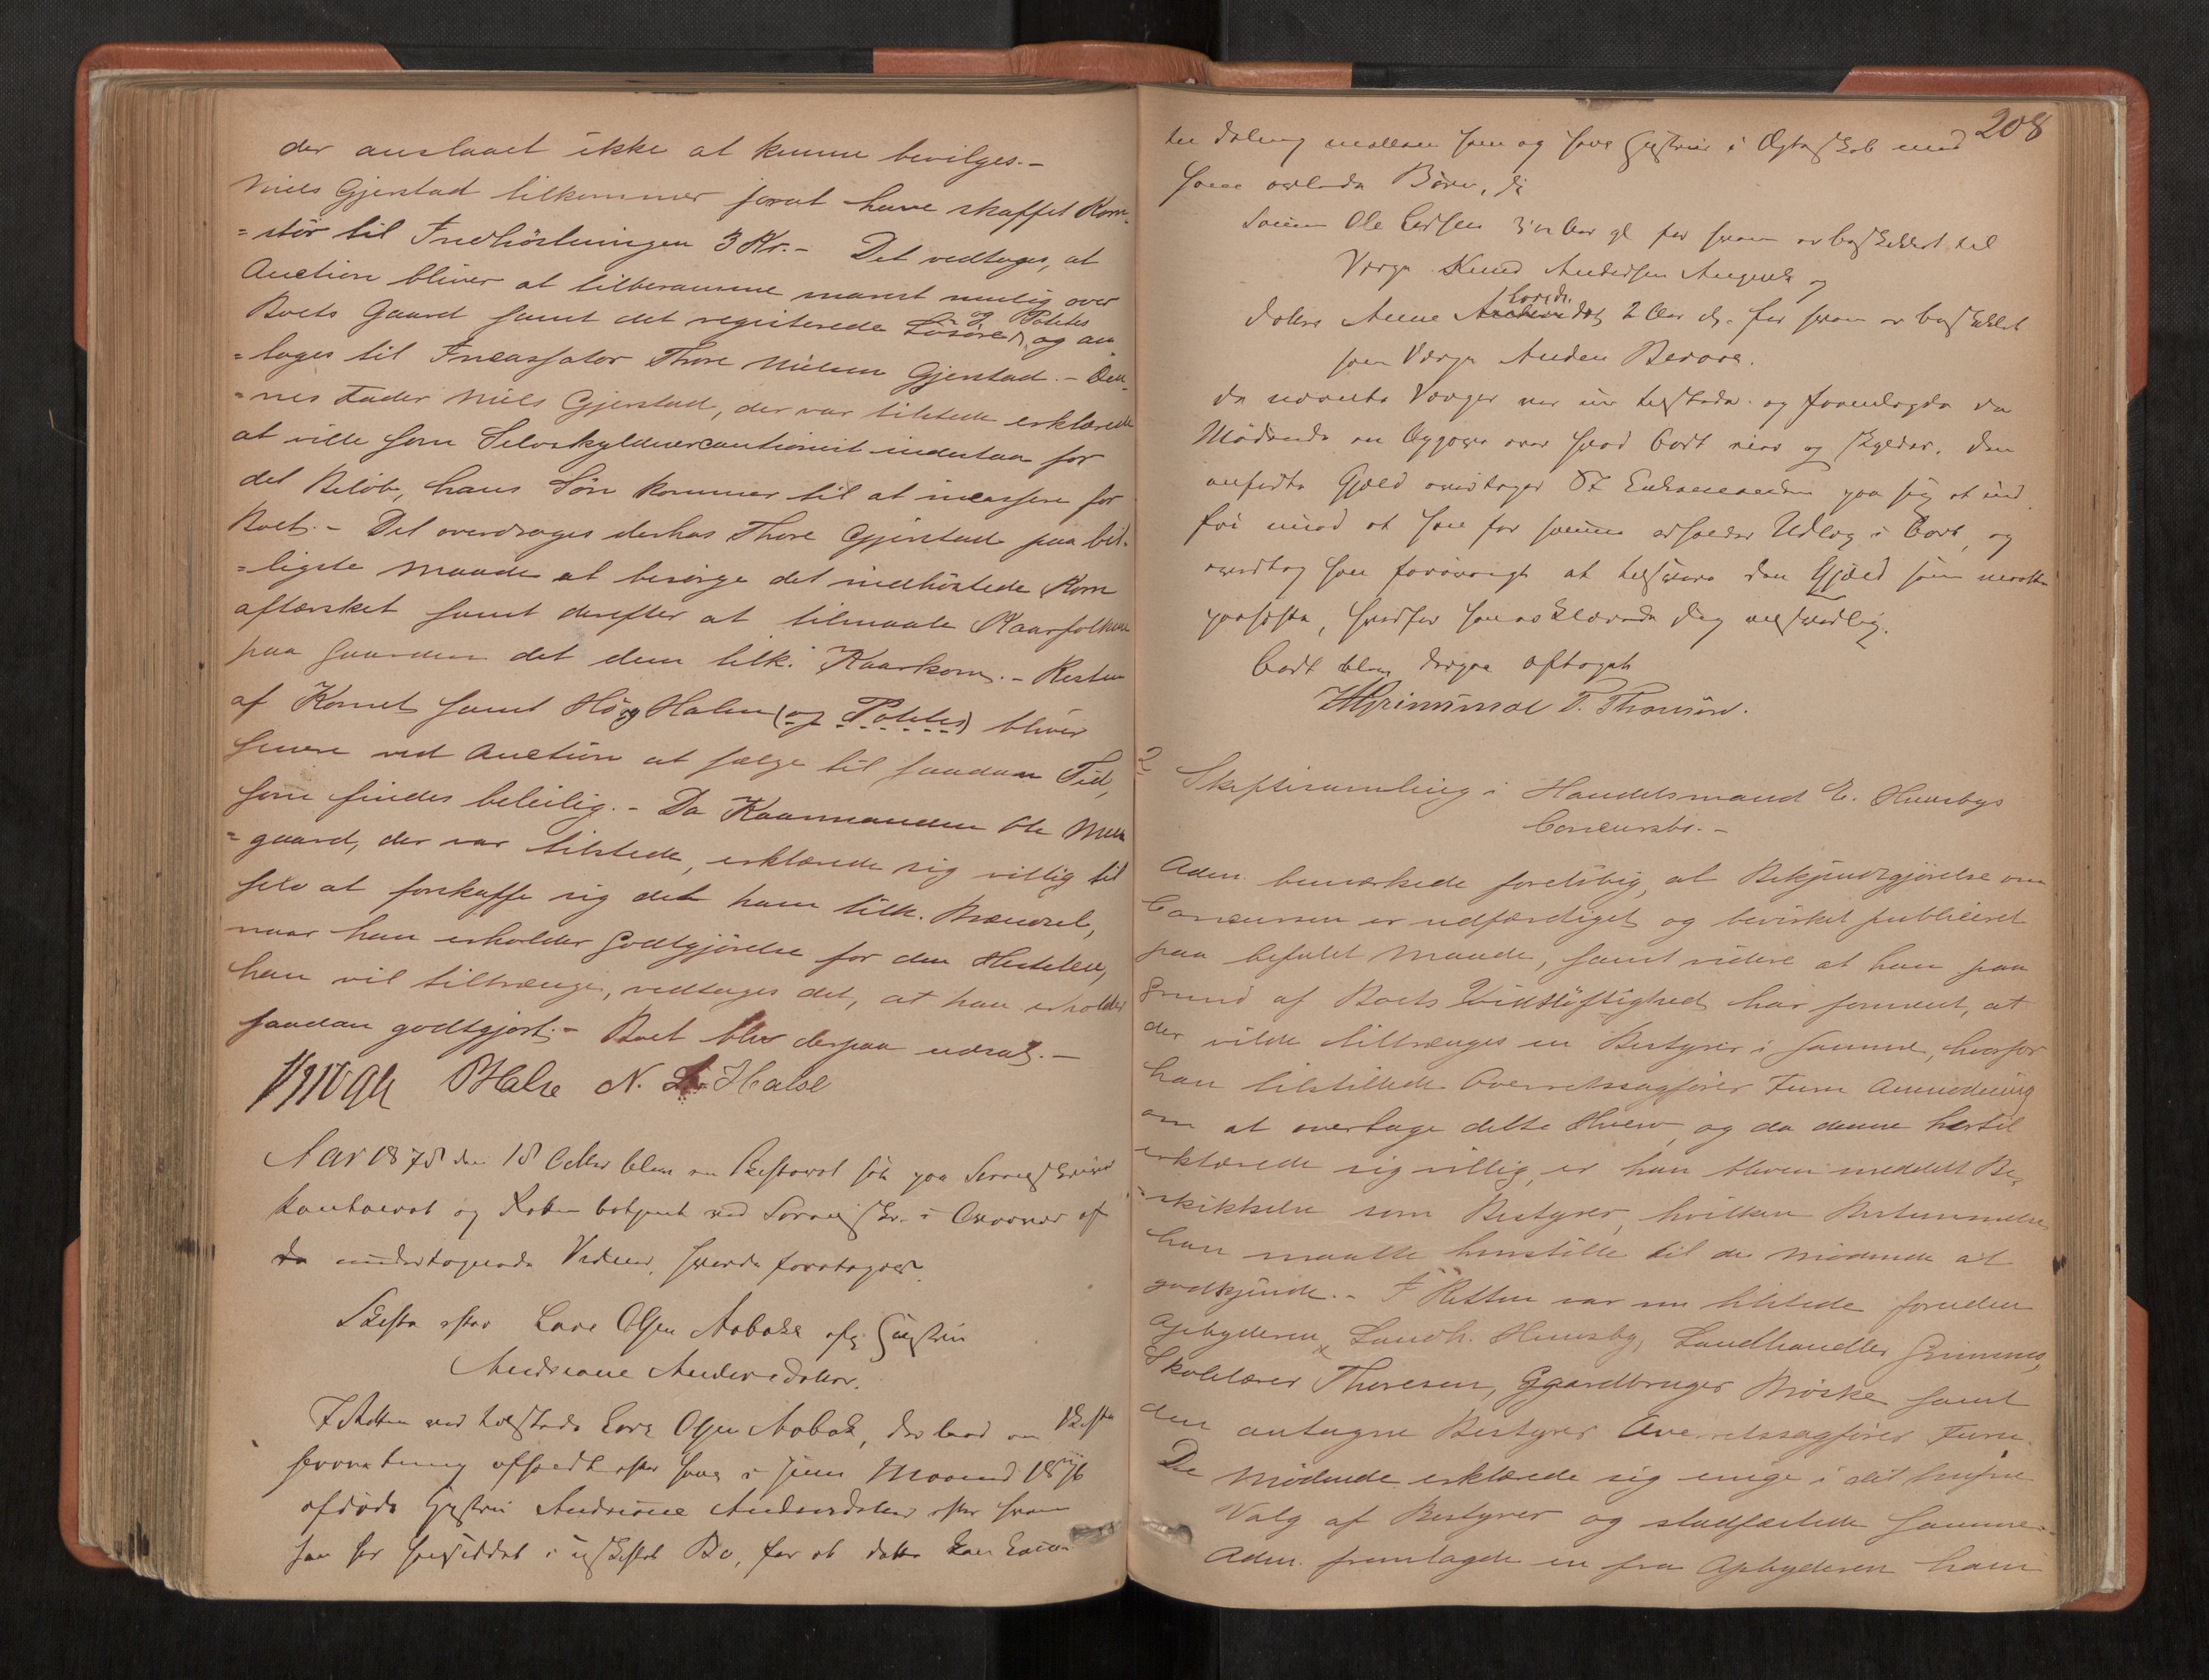 der anslaaet ikke at kunne bevilges. -
Niels Gjerstad tilkommer forat have skaffet Korn-
=stör til Indhöstningen 3 Kr. - Det vedtoges, at
Auction bliver at tilberamme snarest mulig over
Boets Gaard samt det registerede Lösöre og Potetes og an
=toges til Incassator Thore Nielsen Gjerstad. - Den-
=nes Fader Niels Gjerstad, der var tilstede erklærede
at ville som Selvskyldnercautionist indestaa for
det Belöb, hans Sön kommer til at incassere for
Boet. - Det overdroges derhos Thore Gjerstad paa bil-
=ligste Maade at besörge det indhöstede Korn
aftærsket samt derefter at tilmaale Kaarfolkene
paa Gaarden det dem tilk. Kaarkorn. - Resten
af Kornet samt Hö og Halm (og Potetes) bliver
senere ved Auction at sælge til saadan Tid,
som findes beleilig. - Da Kaarmanden Ole Mel
=gaard, der var tilstede, erklærede sig villig til
selv at forskaffe sig det ham tilk. Brændsel,
naar han erholder Godtgjörelse for den Hestelei,
han vil tiltrænge, vedtoges det, at han erholder
saadan godtgjort. - Boet blev derpaa udsat. -
PHalse N. L. Halse
Aar 1878 den 18 Octbr blev en Skifteret sat paa Sorenskriver
kontoret og Retten betjent ved Sorenskr. i Overvær af
de undertegnede Vidner, hvorda foretoges
Skifte efter Lars Olsen Aabaks afg. Hustru
Andreane Andersdatter.
I Retten var tilstede Lars Olsen Aabak, der lod en Skifte
forretning afholdt efter hans i Juni Maaned 1876
afdöde Hustru Andreane Andersdatter efter hvem
han har hensiddet i uskiftet Bo, for at dette kan komme
208
til Deling mellem ham og hans Hustrues i Ægteskab med
ham avlede Börn,
Sönnen Ole Larsen 3 1/2 Aar gl for hvem er beskikket til
Verge Knud Andersen Angvik og
Datter Anne Larsdr. 2 Aar gl. for hvem er beskikket
som Verge Anders Beröre.
De nævnte Verger var nu tilstede og fremlagde de
Mödende en Opgave over hvad Boet eier og skylder. Den
anförte Gjæld overtager Enkemanden paa sig at ind
fri imod at han for samme erholder Udlæg i Boet, og
overtog han forövrigt at tilsvare den Gjæld som maatte
paahvile, hvorfor han erklærede sig ansvarlig.
Boet blev derpaa optaget
HGrimsmo P. Thoresen.
2
Skiftesamling i Handelsmand E. Hunsbys
Concursbo. -
Adm. bemærkede forelöbig, at Bekjendtgjörelse om
Concursen er udfærdiget og bevirket publiceret
paa befalet Maade, samt videre at han paa
Grund af Boets Vidtlöftighed har formeent, at
der vilde tiltrænges en Bestyrer i samme, hvorfor
han tilstillede Overretssagförer Furu Anmodning
om at overtage dette Hverv, og da denne hertil
erklærede sig villig, er han bleven meddelt Be-
=skikkelse som Bestyrer, hvilken Bestemmelse
han maatte henstille til de Mödende at
godkjende. - I Retten var nu tilstede foruden
Opbyderen Landh. Hunsby, Landhandler Grimsmo,
Skolelærer Thoresen, Ggaardbruger Bröske samt
den antagne Bestyrer Overretssagförer Furu.
De Mödende erklærede sig enige i det trufne
Valg af Bestyrer og stadfæstede samme.
Adm. fremlagde en fra Opbyderen ham